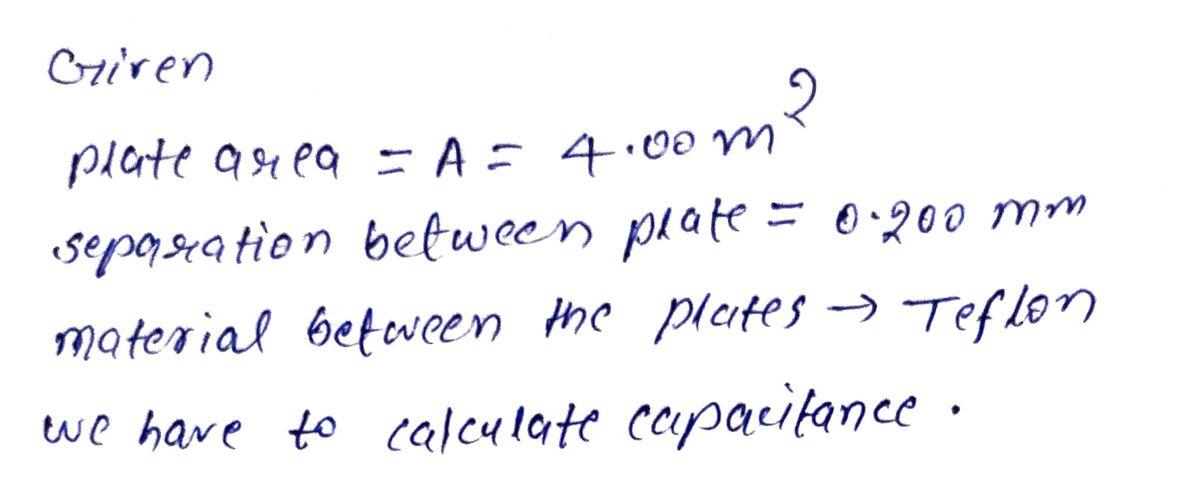 Given
plate area = A = 4.00 m²
separation between plate = 0.200 mm
material between the plates → Teflon
we have to calculate capacitance.